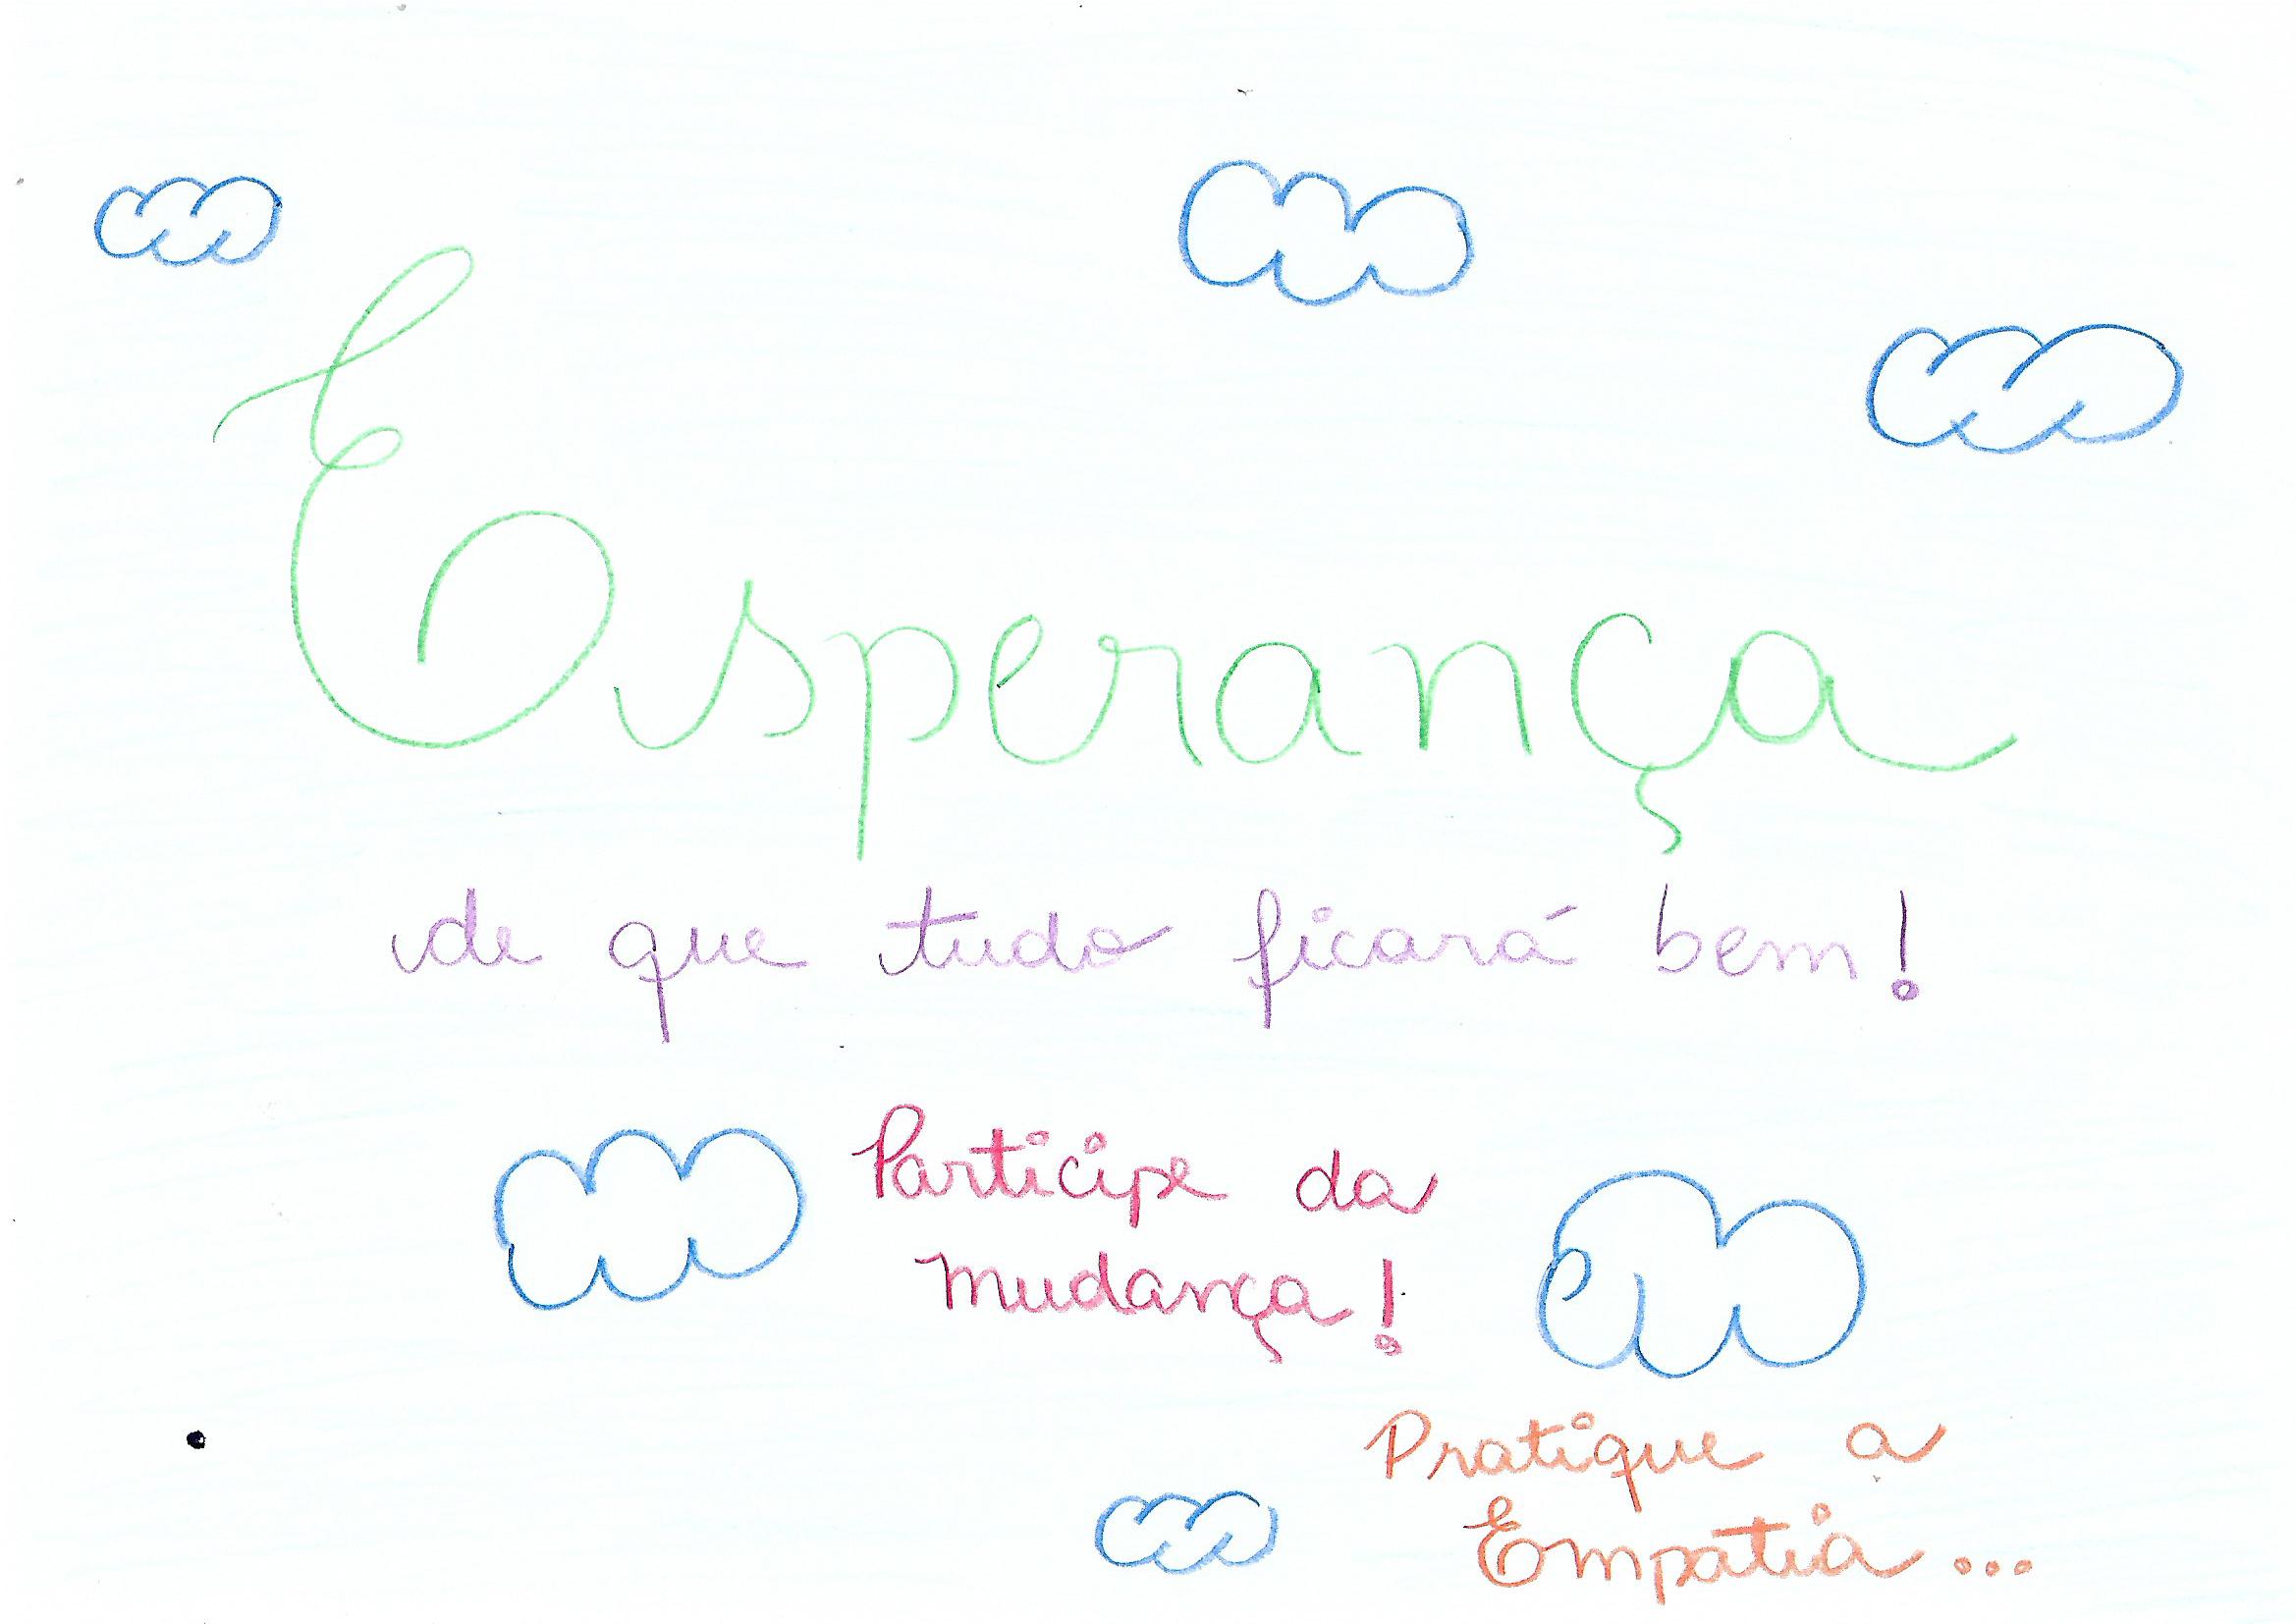 Esperança
de que tudo ficará bem!
Participe da
mudança!
Pratique a
Empatia...